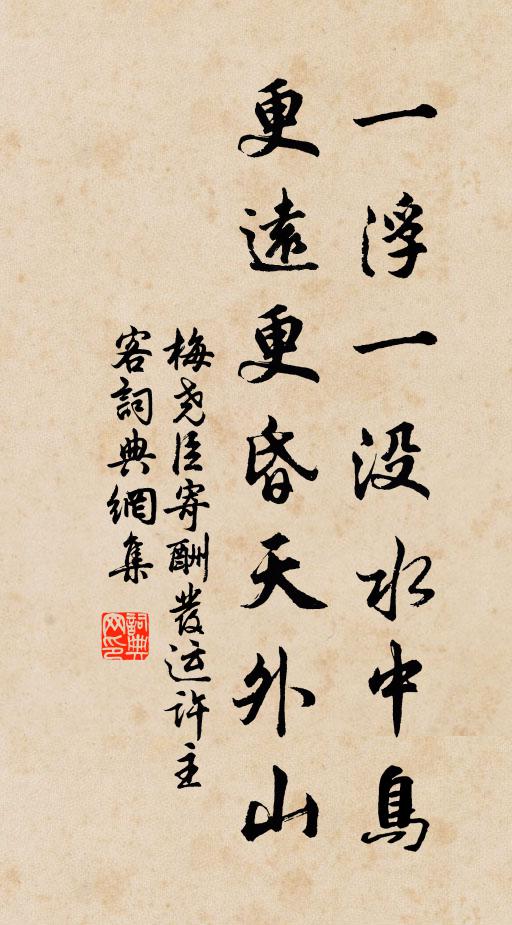 一浮一没水中鳥
更遠更昏天外山
梅尧臣寄酬發运许主
客詞典網集
詞典网印